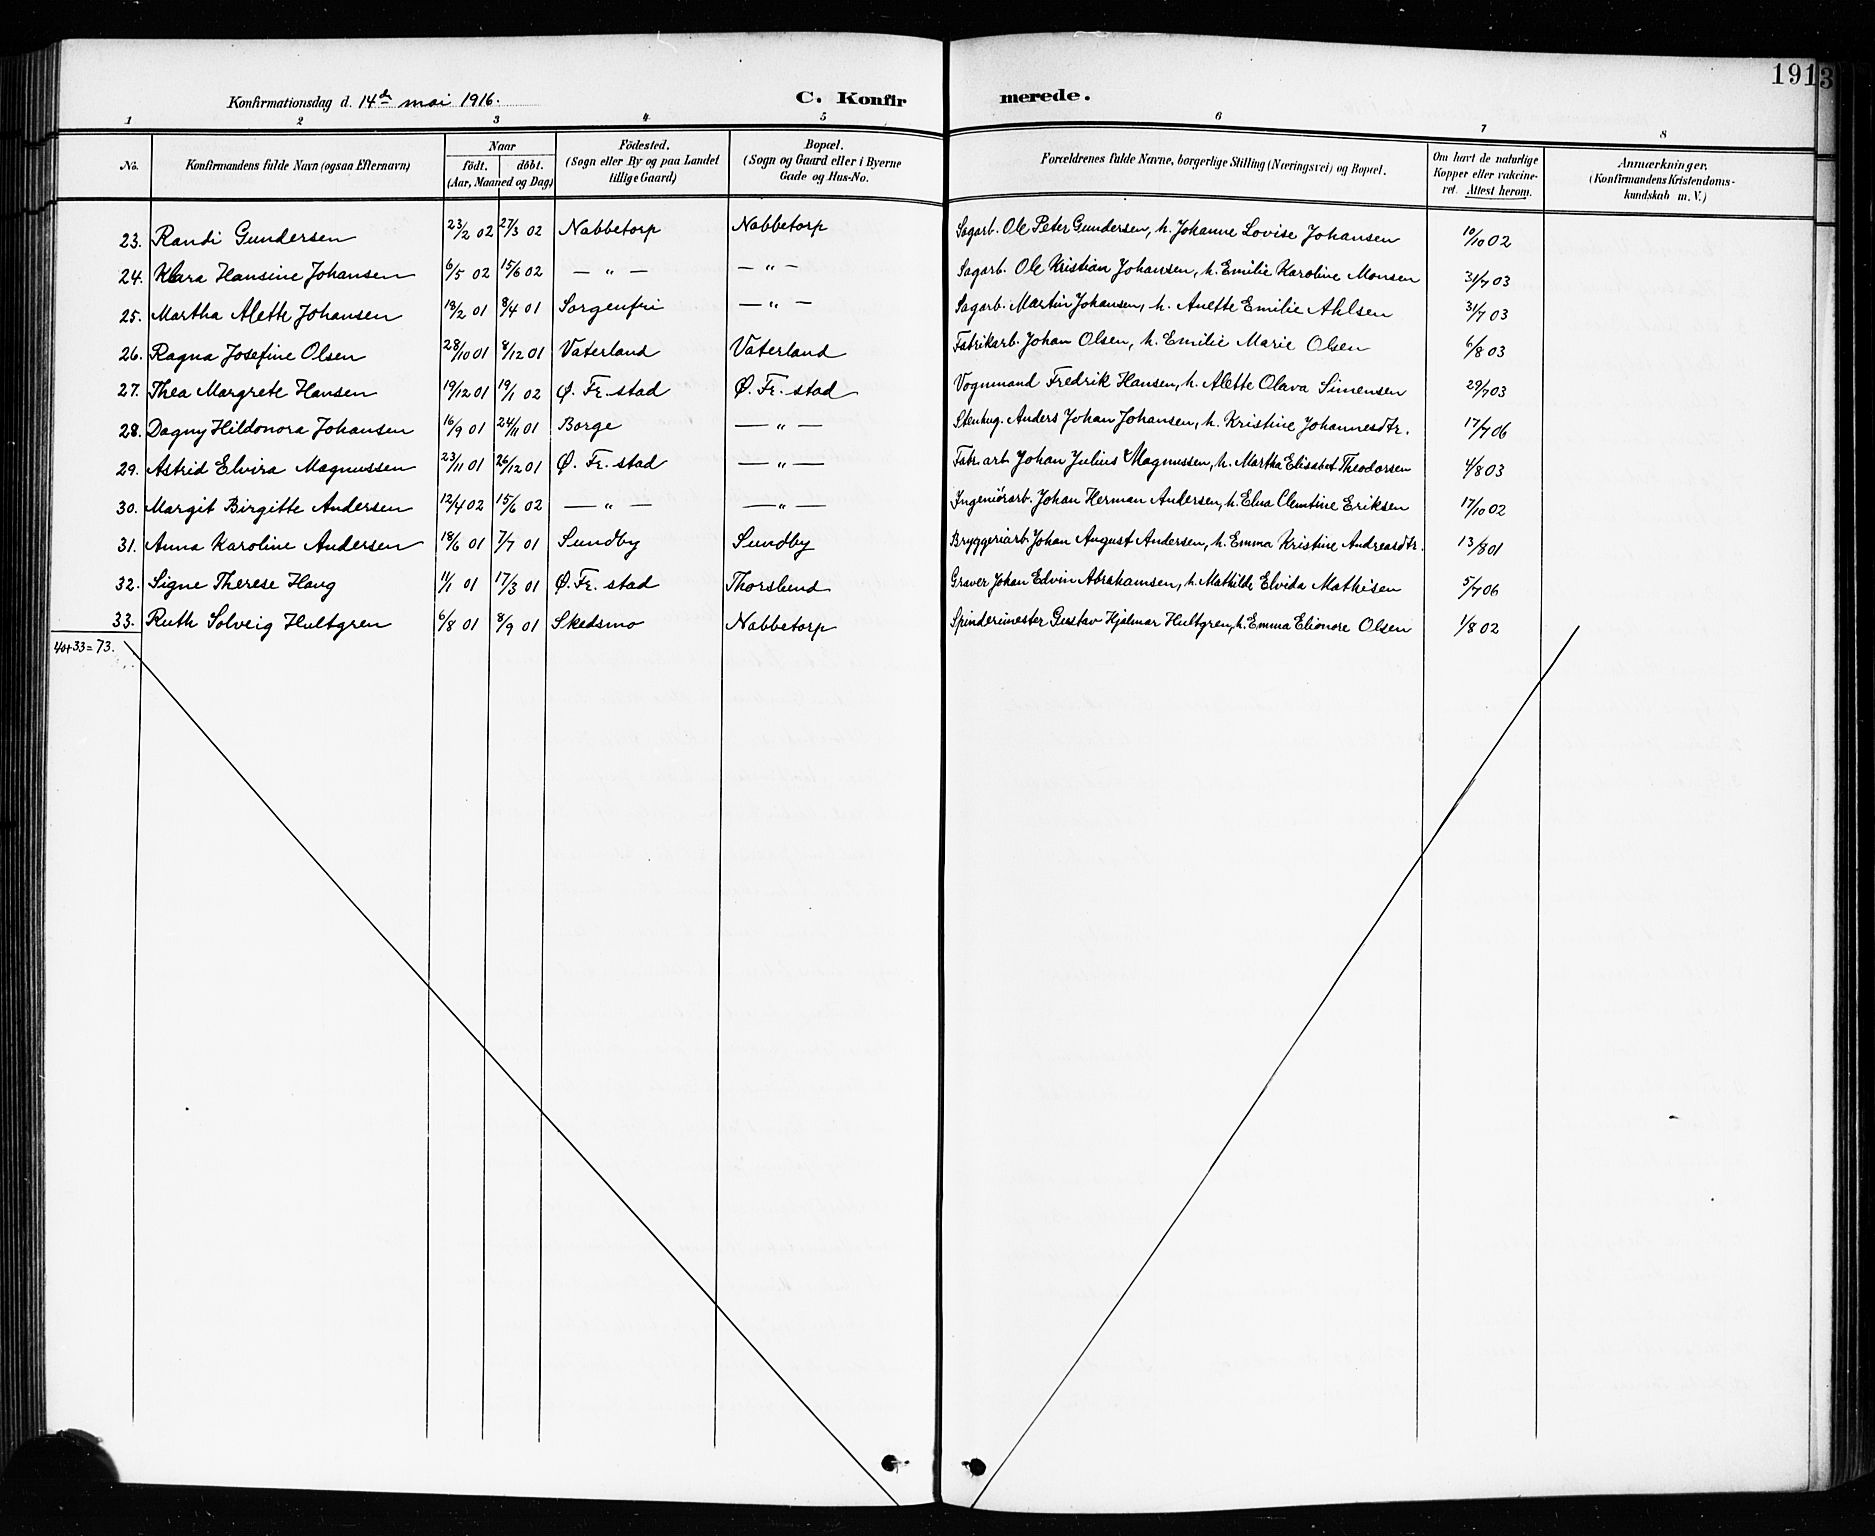 1913
Konfirmationsdag d. 14de mai 1916.
C. Konfirmerede.
1 2 3 4 5 6 7 8
No. | Konfirmandens fulde Navn (ogsaa Efternavn) | Naar født. døbt. (Aar, Maaned og Dag) | Fødested. (Sogn eller By og paa Landet tillige Gaard) | Bopæl. (Sogn og Gaard eller i Byerne Gade og Hus-No. | Forældrenes fulde Navne, borgerlige Stilling (Næringsvei) og Bopæl. | Om havt de naturlige Kopper eller vakcineret. Attest herom. | Anmærkninger. (Konfirmandens Kristendomskundskab m. V.)
23. Randi Gundersen 23/2 02 27/3 02 Nabbetorp Nabbetorp Sagarb. Ole Peter Gundersen, h. Johanne Lovise Johansen 10/10 02
24. Klara Hansine Johansen 6/5 02 15/6 02 — " — — " — Sagarb. Ole Kristian Johansen, h. Emilie Karoline Monsen 31/7 03
25. Martha Alette Johansen 18/2 01 8/4 01 Sorgenfri — " — Sagarb. Martin Johansen, h. Anette Emilie Ahlsen 31/7 03
26. Ragna Josefine Olsen 28/10 01 8/12 01 Vaterland Vaterland Fabrikarb. Johan Olsen, h. Emilie Marie Olsen 6/8 03
27. Thea Margrete Hansen 19/12 01 19/1 02 Ø. Fr. stad Ø. Fr. stad Vognmand Fredrik Hansen, h. Alette Olava Simensen 29/7 03
28. Dagny Hildonora Johansen 16/9 01 24/11 01 Borge — " — Stenhug. Anders Johan Johansen, h. Kristine Johannesdtr. 17/7 06
29. Astrid Elvira Magnussen 23/11 01 26/12 01 Ø. Fr. stad — " — Fabr. arb. Johan Julius Magnussen, h. Martha Elisabet Theodorsen 4/8 03
30. Margit Birgitte Andersen 12/4 02 15/6 02 — " — — " — Ingeniørarb. Johan Herman Andersen, h. Elna Clemtine Eriksen 17/10 02
31. Anna Karoline Andersen 18/6 01 7/7 01 Sundby Sundby Bryggeriarb. Johan August Andersen, h. Emma Kristine Andreasdtr. 13/8 01
32. Signe Therese Haug 11/1 01 17/3 01 Ø. Fr. stad Thorslund Graver Johan Edvin Abrahamsen, h. Mathilde Elvida Mathisen 5/7 06
33. Ruth Solveig Hultgren 6/8 01 8/9 01 Skedsmo Nabbetorp Spinderimester Gustav Hjalmar Hultgren, h. Emma Elionore Olsen 1/8 02
40+33=73.